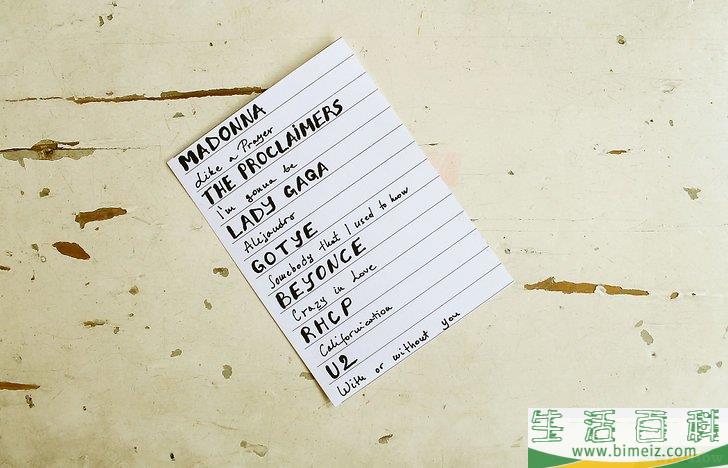 MADONNA
Like a Prayer
THE PROCLAIMERS
I'm gonna be
LADY GAGA
Alejandro
GOTYE
Somebody that I used to know
BEYONCE
Crazy in Love
RHCP
Californication
U2
With or without you
生活百科
www.bimeiz.com